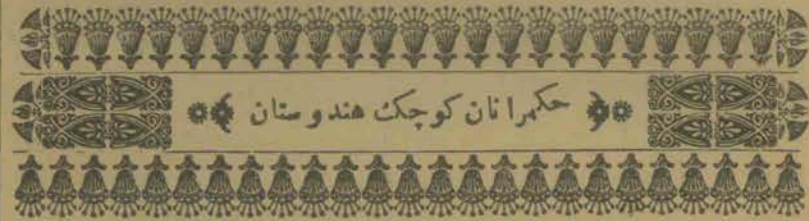 حکمرانان کوچک هندوستان